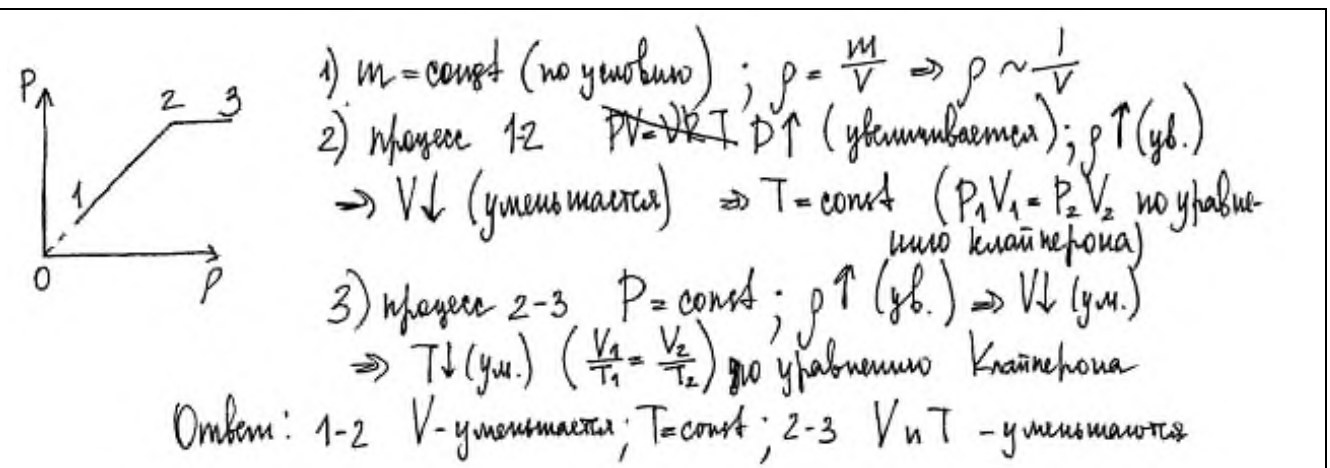 1) m = const (по условию) ; ρ = m/V ⇒ ρ ~ 1/V
P 2 3
2) процесс 1-2 PV=νRT P↑ (увеличивается); ρ↑ (ув.)
1
⇒ V↓ (уменьшается) ⇒ T = const (P₁V₁ = P₂V₂ по уравне-
нию клайперона)
0 ρ
3) процесс 2-3 P = const ; ρ↑ (ув.) ⇒ V↓ (ум.)
⇒ T↓ (ум.) (V₁/T₁ = V₂/T₂) по уравнению Клайперона
Ответ: 1-2 V - уменьшается; T=const ; 2-3 V и T - уменьшаются